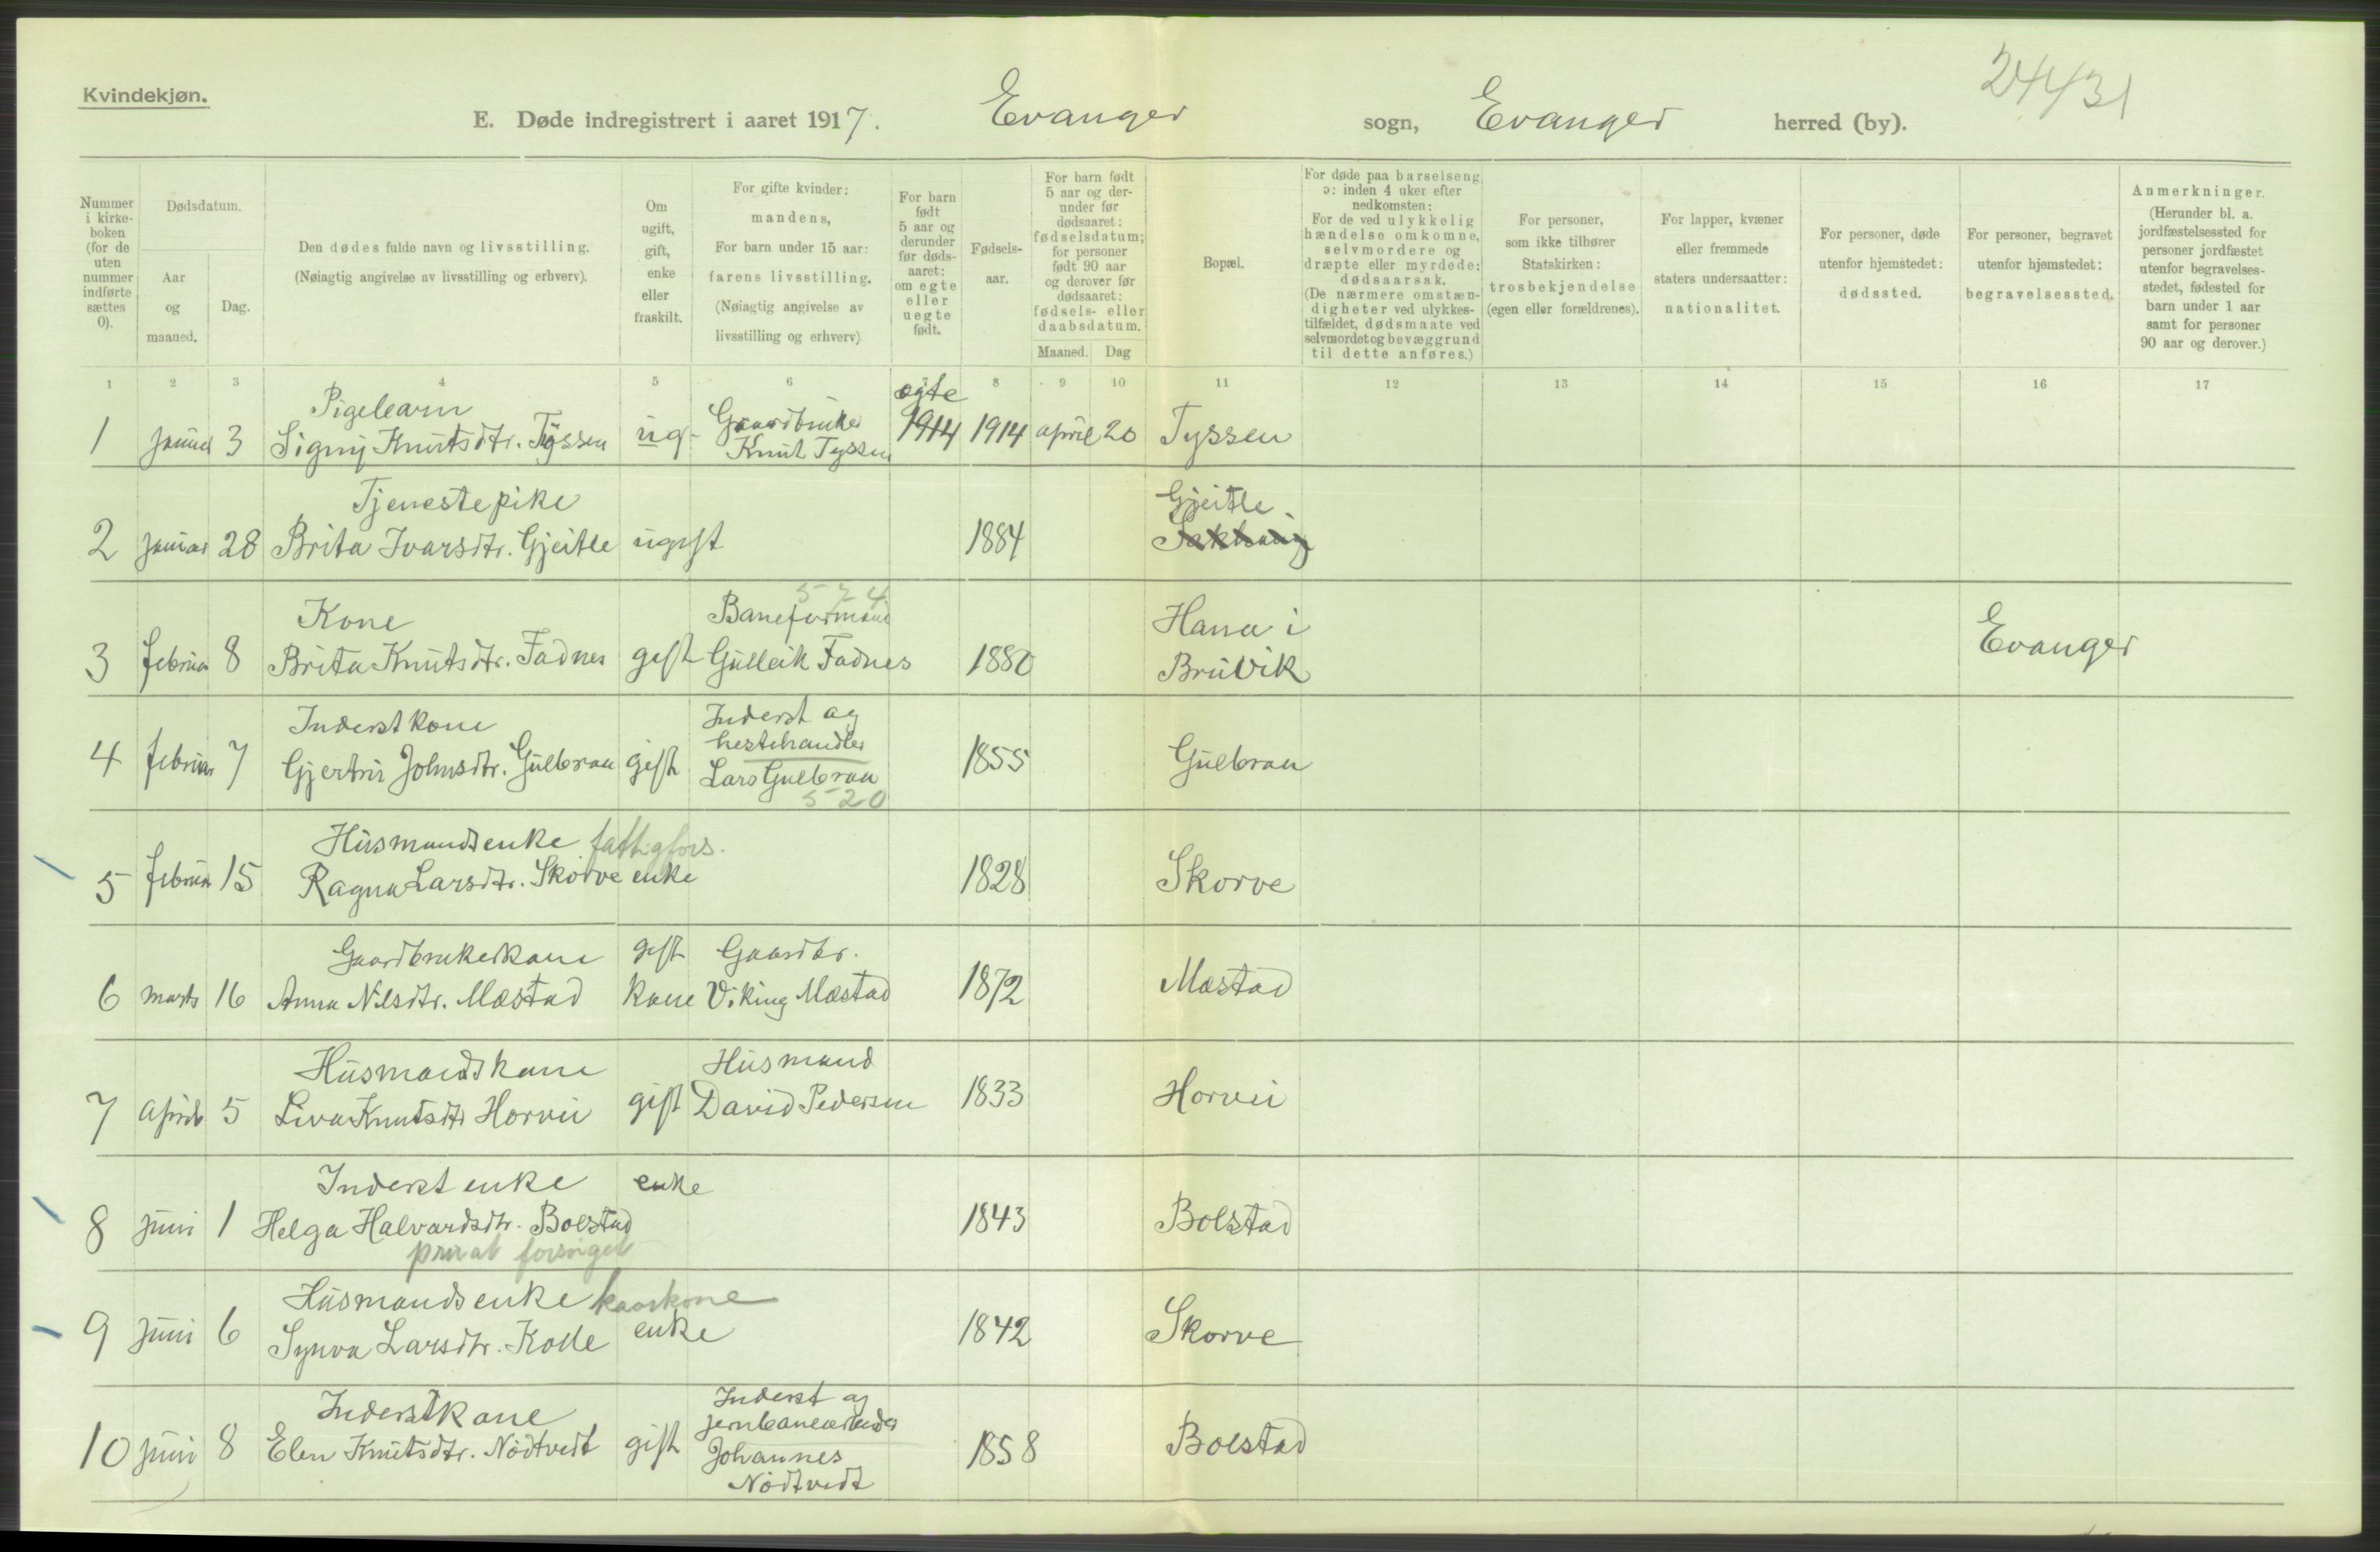 Kvindekjøn.
24431
E. Døde indregistrert i aaret 1917. Evanger sogn, Evanger herred (by).
Nummer i kirkeboken (for de uten nummer indførte sættes 0).
Dødsdatum.
Aar og maaned.
Dag.
Den dødes fulde navn og livsstilling.
(Nøiagtig angivelse av livsstilling og erhverv).
Om ugift, gift, enke eller fraskilt.
For gifte kvinder: mandens,
For barn under 15 aar: farens livsstilling.
(Nøiagtig angivelse av livsstilling og erhverv)
For barn født 5 aar og derunder før dødsaaret: om egte eller uegte født.
Fødselsaar.
For barn født 5 aar og derunder før dødsaaret: fødselsdatum; for personer født 90 aar og derover før dødsaaret: fødsels- eller daabsdatum.
Maaned. Dag
Bopæl.
For døde paa barselseng ɔ: inden 4 uker efter nedkomsten:
For de ved ulykkelig hændelse omkomne, selvmordere og dræpte eller myrdede: dødsaarsak.
(De nærmere omstændigheter ved ulykkestilfældet, dødsmaate ved selvmordet og bevæggrund til dette anføres.)
For personer, som ikke tilhører Statskirken: trosbekjendelse (egen eller forældrenes).
For lapper, kvæner eller fremmede staters undersaatter: nationalitet.
For personer, døde utenfor hjemstedet: dødssted.
For personer, begravet utenfor hjemstedet: begravelsessted.
Anmerkninger.
(Herunder bl. a. jordfæstelsessted for personer jordfæstet utenfor begravelsesstedet, fødested for barn under 1 aar samt for personer 90 aar og derover.)
1 2 3 4 5 6 7 8 9 10 11 12 13 14 15 16 17
Pigebarn egte
1 januar 3 Signy Knutsdtr. Tyssen ug. Gaardbruker Knut Tyssen 1914 1914 april 20 Tyssen
Tjenestepike Gjeitle
2 januar 28 Brita Ivarsdtr. Gjeitle ugift 1884
Kone Baneformand 574 Hana i
3 februar 8 Brita Knutsdtr. Fadnes gift Gulleik Fadnes 1880 Bruvik Evanger
Inderstkone Inderst og hestehandler
4 februar 7 Gjertru Johnsdtr. Gulbraa gift Lars Gulbraa 1855 Gulbraa
520
Husmandsenke fattigfors.
5 februar 15 Ragna Larsdtr. Skorve enke 1828 Skorve
Gaardbrukerkone gift Gaardbr.
6 marts 16 Anna Nilsdtr. Mæstad kone Viking Mæstad 1872 Mæstad
Husmandskone Husmand
7 april 5 Liva Knutsdtr Horvei gift David Pedersen 1833 Horvei
Inderst enke enke
8 juni 1 Helga Halvardsdtr. Bolstad 1843 Bolstad
privat forsørget
Husmandsenke kaarkone
9 juni 6 Synva Larsdtr. Kolle enke 1842 Skorve
Inderstkone Inderst og jernbanearbeider
10 juni 8 Elen Knutsdtr. Nödtvedt gift Johannes Nödtvedt 1858 Bolstad